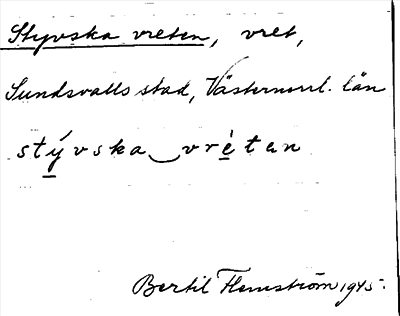 Styvska vreten, vret,
Sundsvalls stad, Västernorrl. län
stývska‿vréten
Bertil Flemström 1945.